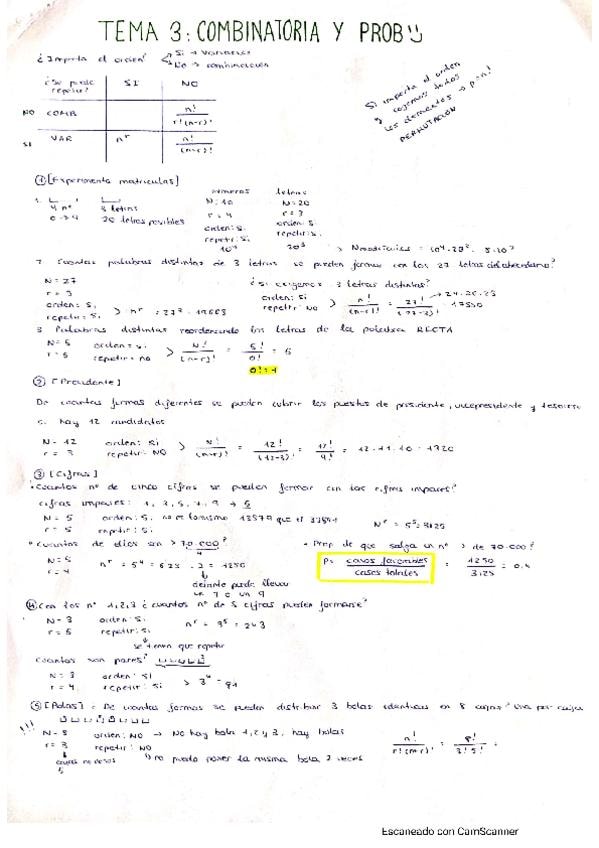 TEMA 3: COMBINATORIA Y PROB
¿Importa el orden? Si → Variación
No → combinación
¿Se puede repetir? SI NO
NO COMB n! / r!(n-r)!
SI VAR nʳ n! / (n-r)!
Si importa el orden
y cogemos todos
los elementos → p=n!
PERMUTACIÓN
① [Experimento matriculas]
4 nº 3 letras
20 letras posibles
números letras
N: 10 N=20
r = 4 r = 3
orden: si orden: si
repetir: si repetir: si
10⁴ 20³
> Nmatrículas = 10⁴·20³
Cuantas palabras distintas de 3 letras se pueden formar con las 27 letras del abecedario?
N = 27
r = 3
orden: si
repetir: si > nʳ = 27³ = 19683
¿Si exigimos 3 letras distintas?
orden: si
repetir: NO > n! / (n-r)! = 27! / (27-3)!
3 Palabras distintas reordenando las letras de la palabra RECTA
N= 5 orden: si
r = 5 repetir: no > N! / (n-r)! = 5! / 0!
0! = 1
② [Presidente]
De cuantas formas diferentes se pueden cubrir los puestos de presidente, vicepresidente y tesorero
si hay 12 candidatos
N = 12 orden: si
r = 3 repetir: NO > N! / (n-r)! = 12! / (12-3)! = 12! / 9! = 12·11·10 = 1320
③ [Cifras]
• Cuantos nº de cinco cifras se pueden formar con las cifras impares?
cifras impares: 1, 3, 5, 7, 9 → 5
N = 5 orden: si no es lo mismo 13579 que el
r = 5 repetir: si
Nʳ = 5⁵ = 3125
• Cuantos de ellos son > 70.000?
N = 5
r = 4
nʳ = 5⁴ = 625 · 2 = 1250
delante puede llevar
un 7 o un 9
• Prob de que salga un nº > de 70.000?
P= casos favorables / casos totales = 1250 / 3125 = 0.4
④ Con los nº 1,2,3 ¿cuantos nº de 5 cifras pueden formarse?
N = 3 orden: si
r = 5 repetir: si nʳ = 3⁵ = 243
se tienen que repetir
Cuantos son pares?
N = 3 orden: SI
r = 4 repetir: si > 3⁴ = 81
⑤ [Bolas] • De cuantas formas se pueden distribuir 3 bolas identicas en 8 cajas? Una por caja
!!!
N = 8 orden: NO → No hay bola 1, 2 y 3, hay bolas
r = 3 repetir: NO
no puedo poner la misma bola 2 veces
n! / r!(n-r)! = 8! / 3! 5! =
Escaneado con CamScanner